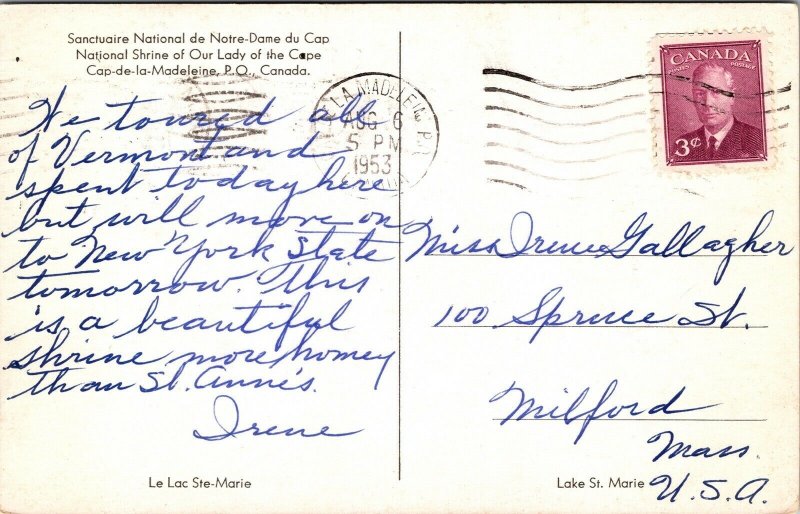 Sanctuaire National de Notre-Dame du Cap
National Shrine of Our Lady of the Cape
Cap-de-la-Madeleine, P.Q., Canada.
We toured all
of Vermont and
spent today here
but will move on
to New York State
tomorrow. This
is a beautiful
shrine more homey
than St. Anne's.
Irene
Le Lac Ste-Marie
LA MADELEINE P.Q.
AUG 6
5 PM
1953
CANADA
POSTES POSTAGE
3¢
Miss Irene Gallagher
100 Spruce St.
Milford
Mass.
U.S.A.
Lake St. Marie